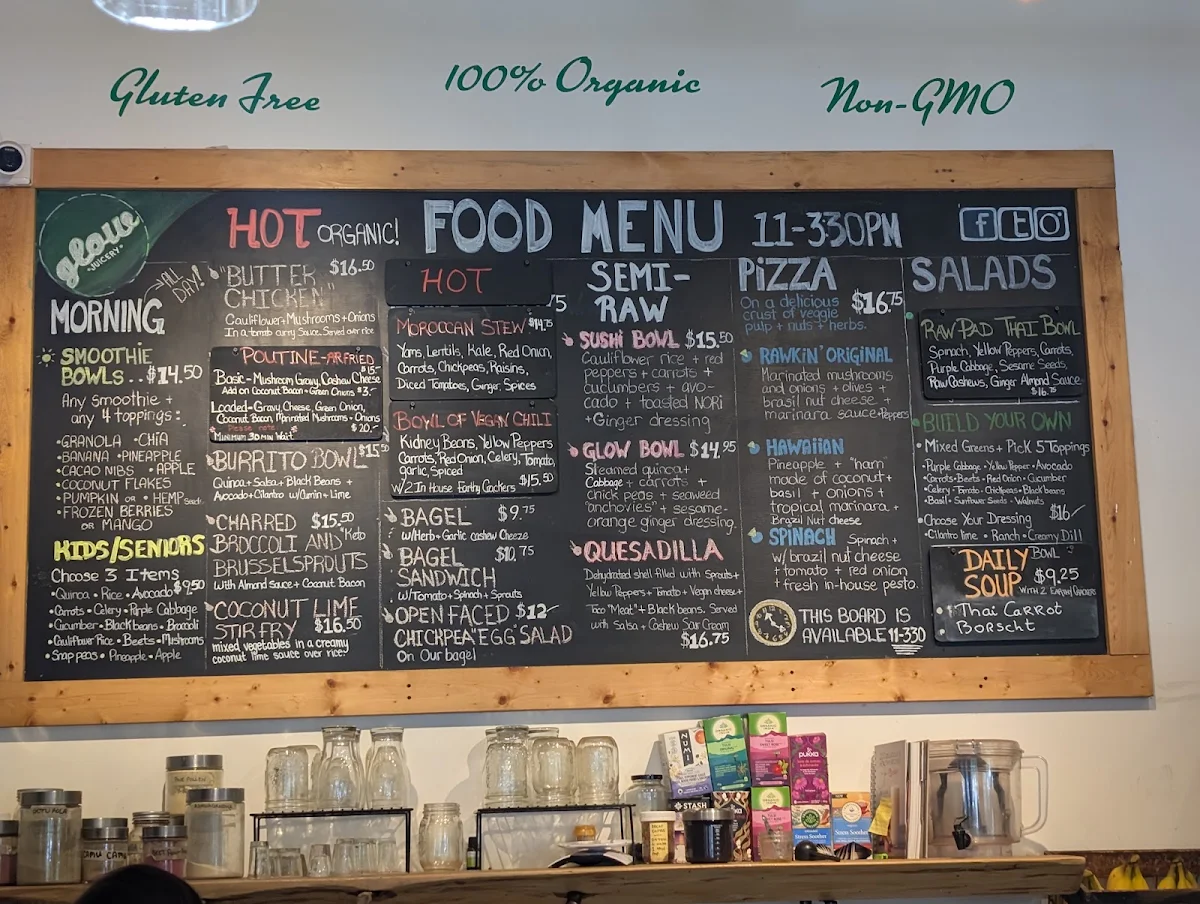 Gluten Free
100% Organic
Non-GMO
glow
•JUICERY•
HOT ORGANIC!
FOOD MENU
11-3:30PM
f t
ALL DAY!
MORNING
SMOOTHIE
BOWLS.. $14.50
Any smoothie +
any 4 toppings:
•GRANOLA •CHIA
•BANANA •PINEAPPLE
•CACAO NIBS •APPLE
•COCONUT FLAKES
•PUMPKIN OR •HEMP Seeds
•FROZEN BERRIES
OR MANGO
KIDS/SENIORS
Choose 3 Items
$9.50
•Quinoa •Rice •Avocado
•Carrots •Celery •Purple Cabbage
•Cucumber •Black beans •Broccoli
•Cauliflower Rice •Beets •Mushrooms
•Snap peas •Pineapple •Apple
"BUTTER $16.50
CHICKEN"
Cauliflower+Mushrooms+Onions
In a tomato curry Sauce. Served over rice
POUTINE-AIRFRIED
$15-
Basic-Mushroom Gravy, Cashew Cheese
Add on Coconut Bacon+Green Onions $3.-
Loaded-Gravy, Cheese, Green Onion,
Coconut Bacon, Marinated Mushrooms+Onions
* Please note * $20.-
MINIMUM 30 MIN WAIT
BURRITO BOWL $15.50
Quinoa+Salsa+Black Beans +
Avocado+Cilantro w/Cumin+Lime
CHARRED $15.50
BROCCOLI AND Keto
BRUSSELSPROUTS
with Almond Sauce+Coconut Bacon
COCONUT LIME
STIR FRY $16.50
mixed vegetables in a creamy
coconut lime sauce over rice!
HOT
75
MOROCCAN STEW $14.75
Yams, Lentils, Kale, Red Onion,
Carrots, Chickpeas, Raisins,
Diced Tomatoes, Ginger, Spices
BOWL OF VEGAN CHILI
Kidney Beans, Yellow Peppers
Carrots, Red Onion, Celery, Tomato,
garlic, Spiced
w/2 In House Earthy Crackers $15.50
BAGEL $9.75
w/Herb+Garlic cashew Cheeze
BAGEL $10.75
SANDWICH
w/Tomato+Spinach+Sprouts
OPEN FACED $12-
CHICKPEA "EGG" SALAD
On Our bagel
SEMI-
RAW
SUSHI BOWL $15.50
Cauliflower rice + red
peppers + carrots +
cucumbers + avo-
cado + toasted NORI
+Ginger dressing
GLOW BOWL $14.95
Steamed quinoa+
Cabbage + carrots +
chick peas + seaweed
"anchovies" + sesame-
orange ginger dressing.
QUESADILLA
Dehydrated shell filled with Sprouts+
Yellow Peppers+Tomato+Vegan cheese+
Taco "Meat"+Black beans. Served
with Salsa + Cashew Sour Cream
$16.75
PIZZA
On a delicious $16.75
crust of veggie
pulp + nuts + herbs.
RAWKIN' ORIGINAL
Marinated mushrooms
and onions + olives +
brasil nut cheese +
marinara sauce+Peppers
HAWAIIAN
Pineapple + "ham"
made of coconut+
basil + onions +
tropical marinara +
Brazil Nut cheese
SPINACH Spinach +
w/brazil nut cheese
+ tomato + red onion
+ fresh in-house pesto.
THIS BOARD IS
AVAILABLE 11-330
SALADS
RAW PAD THAI BOWL
Spinach, Yellow Peppers, Carrots,
Purple Cabbage, Sesame Seeds,
Raw Cashews, Ginger Almond Sauce
$16.75
BUILD YOUR OWN
•Mixed Greens + Pick 5 Toppings
•Purple Cabbage •Yellow Pepper •Avocado
•Carrots •Beets •Red Onion •Cucumber
•Celery •Tomato •Chickpeas •Black beans
•Basil •Sunflower Seeds •Walnuts
$16-
•Choose Your Dressing
•Cilantro lime •Ranch •Creamy Dill
DAILY BOWL
SOUP $9.25
WITH 2 EARTHY CRACKERS
Thai Carrot
Borscht
NUMI
pukka
STASH
Stress Soother
Stress Soother